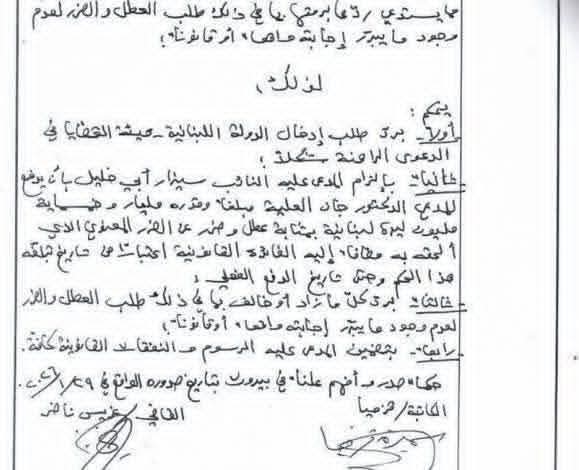 مما يستدعي ردّها برمتها بما في ذلك طلب العطل والضرر لعدم
وجود ما يبرّر إجابته واقعاً أو قانوناً؛
لذلك،
يحكم:
أولاً- بردّ طلب إدخال الدولة اللبنانية - هيئة القضايا في
الدعوى الراهنة شكلاً؛
ثانياً- بإلزام المدعى عليه النائب سيزار أبي خليل بأن يدفع
للمدعي الدكتور جان العلية مبلغاً وقدره مليار وخمسماية
مليون ليرة لبنانية بمثابة عطل وضرر عن الضرر المعنوي الذي
ألحقه به مضافاً إليه الفائدة القانونية اعتباراً من تاريخ تبلّغه
هذا الحكم وحتى تاريخ الدفع الفعلي؛
ثالثاً- بردّ كلّ ما زاد أو خالف بما في ذلك طلب العطل والضرر
لعدم وجود ما يبرّر إجابته واقعاً أو قانوناً؛
رابعاً- بتضمين المدعى عليه الرسوم والنفقات القانونية كافة.
حكماً صدر وأفهم علناً في بيروت بتاريخ صدوره الواقع في ٢٩/١/٢٠٢٦
الكاتبة/ القاضي